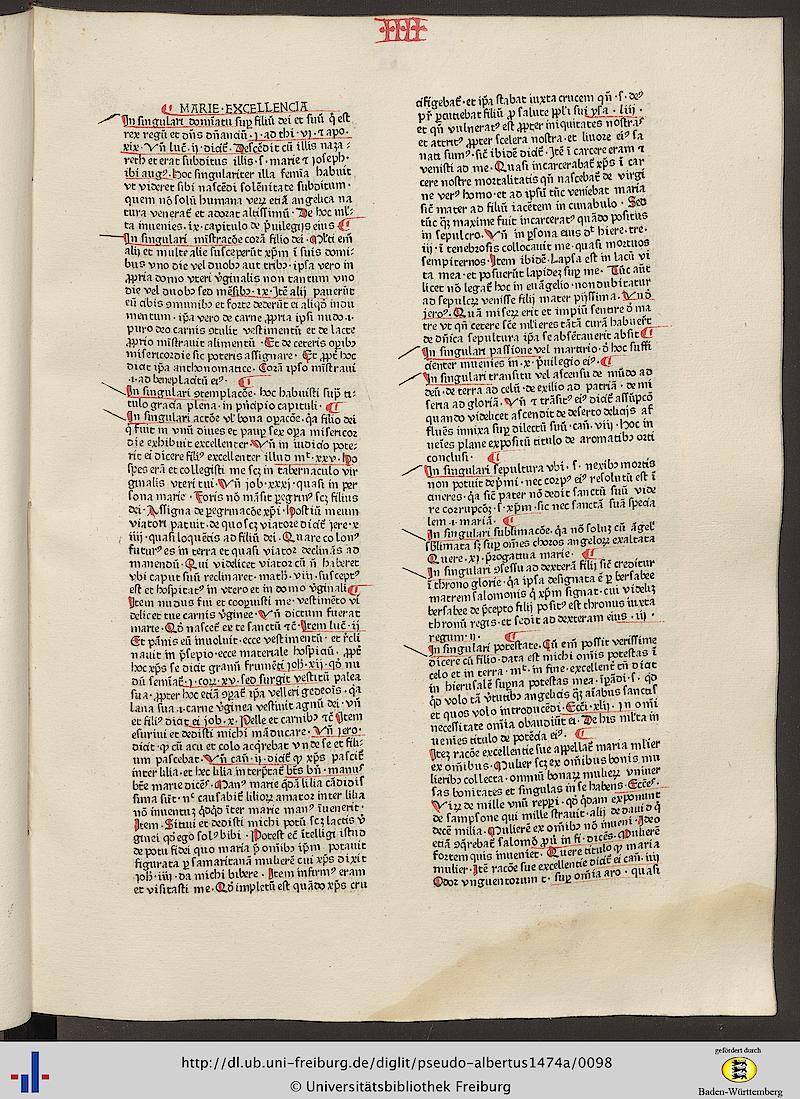 IIII
MARIE·EXCELLENCIA
In singulari domīatu suꝑ filiū dei et suū ꝙ est
rex regū et dn̄s dn̄anciū·i·ad thi·vi·⁊ apo·
xix·Vn̄ luc̄·ij·dicit̄·Descēdit cū illis naza-
reth et erat subditus illis·s·marie ⁊ ioseph·
ibi augꝰ·hoc singulariter illa femīa habuit
vt videret sibi nascēdi solēnitate subditum·
quem nō solū humana verꝫ etiā angelica na
tura venerat̄ et adorat altissimū·De hoc ml̄-
ta inuenies·ix·capitulo de p̄uilegijs eius
In singulari mīstracōe corā filio dei·Ml̄ti em̄
alij et multe alie susceperūt xp̄m ī suis domi-
bus vno die vel duobꝫ aut tribꝫ·ipsa vero in
ꝓpria domo vteri v̄ginalis non tantum vno
die vel duobꝫ sed mēsibꝫ·ix·Itē alij pauerūt
eū cibis omnibꝫ et forte dederūt ei aliqd̄ indu
mentum·ip̄a vero de carne ꝓpria ipsi nudo·i·
puro deo carnis ōtulit vestimentū et de lacte
ꝓprio mīstrauit alimentū·Et de ceteris opibꝫ
misericordie sic poteris assignare·Et ꝓpt̄ hoc
dicat ip̄a anthonomatice·Corā ipso mīstraui
·i·ad beneplacitū eiꝰ·
In singulari ꝯtemplacōe·hoc habuisti suꝑ ti-
tulo gracia plena·in p̄ncipio capituli·
In singulari actōe vl̄ bona oꝑacōe·qꝛ filio dei
q̄ fuit in vnū diues et pauꝑ sex oꝑa misericor
die exhibuit excellenter·Vn̄ in iudicio pote-
rit ei dicere filiꝰ excellenter illud mt̄·xxv·Ho
spes erā et collegisti me scꝫ in tabernaculo vir
ginalis vteri tui·Vn̄ job·xxxj·quasi in per
sona marie·Foris nō māsit ꝑegrinꝰ scꝫ filius
dei·Assigna de ꝑegrinacōe xp̄i·Hostiū meum
viatori patuit·de quo scꝫ viatore dicit̄ jere·x
iiij·quasi loquētis ad filiū dei·Quare colonꝰ
futurꝰ es in terra et quasi viator declināns ad
manendū·Qui videlicet viator cū n̄ haberet
vbi caput suū reclinaret·math·viij·susceptꝰ
est et hospitatꝰ in vtero et in domo v̄ginali
Item nudus fui et cooꝑuisti me·vestimēto vi
delicet tue carnis v̄ginee·Vn̄ dictum fuerat
marie·Qd̄ nascet̄ ex te sanctū ⁊c̄·Item luc̄·ij
Et pānis eū inuoluit·ecce vestimentū·et r̄cli
nauit in p̄sepio·ecce materiale hospiciū·ꝓpt̄
hoc xp̄s se dicit granū frumēti joh̄·xij·qd̄ nu
dū semīat̄·j·cor̄·xv·sed surgit vestitū palea
sua·ꝓpter hoc etiā ꝯꝑat̄ ip̄a velleri gedeōis·qꝛ
lana sua·i·carne v̄ginea vestiuit agnū dei·vn̄
et filiꝰ dicat ei job·x·Pelle et carnibꝫ ⁊c̄ Item
esuriui et dedisti michi māducare·Vn̄ jero·
dicit·ꝙ cū acu et colo acq̄rebat vnde se et fili-
um pascebat·Vn̄ can̄·ij·dicit̄ ꝙ xp̄s pascit̄
inter lilia·et hec lilia interp̄tat̄ bt̄s bn̄·manꝰ
bt̄e marie dicēs·Manꝰ marie q̄dā lilia cādidis
sima sūt·nc̄ causabit̄ liliorꝫ amator inter lilia
nō inuentꝰ q̄dq̄d iter marie manꝰ iuuenerit·
Item·Sitiui et dedisti michi potū scꝫ lactis v̄
ginei qd̄ ego solꝰ bibi·Potest ec̄ ītelligi istud
de potu fidei quo maria p̄ omībꝫ ip̄m potauit
figurata ꝑ samaritanā mulierē cui xp̄s dixit
joh̄·iiij·da michi bibere·Item infirmꝰ eram
et visitasti me·Qd̄ impletū est quādo xp̄s cru
cifigebat̄·et ip̄a stabat iuxta crucem qn̄·s·deꝰ
pr̄ ꝑcutiebat filiū ꝓ salute ppl̄i sui ysa·liij·
et qn̄ vulneratꝰ est ꝓpter iniquitates nostras
et attritꝰ ꝓpter scelera nostra·et liuore eiꝰ sa
nati sumꝰ·sic̄ ibidē dicit̄·Itē ī carcere eram ⁊
venisti ad me·Quasi incarcerabat̄ xp̄s ī car
cere nostre mortalitatis qn̄ nascebat̄ de virgi
ne verꝰ homo·et ad ipsū tūc veniebat maria
sic̄ mater ad filiū iacētem in cunabulo·Sed
tūc qꝫ maxime fuit incarceratꝰ quādo positus
in sepulcro·Vn̄ in ꝑsona eius dꝛ hiere·tre·
iij·ī tenebrosis collocauit me·quasi mortuos
sempiternos·Item ibidē·Lapsa est in lacū vi
ta mea·et posuerūt lapidez suꝑ me·Tūc aūt
licet nō legat̄ hoc in euāgelio·non dubitatur
ad sepulcrꝫ venisse filij mater pijssima·Vnd̄
jeroꝰ·Quā miseꝝ erit et impiū sentire d̄ ma
tre vt qn̄ cetere sc̄e ml̄ieres tātā curā habuert̄
de dn̄ica sepultura ip̄a se absētauerit absit
In singulari passione vel martirio·d̄ hoc suffi
cienter inuenies in·x·p̄uilegio eiꝰ·
In singulari transitu vel ascensu de mūdo ad
deū·de terra ad celū·de exilio ad patriā·de mi
seria ad gloriā·Vn̄ ⁊ trāsitꝰ eiꝰ dicit̄ assūpcō
quando videlicet ascendit de deserto delicijs af
fluēs innixa suꝑ dilectū suū·can̄·viij·hoc in
uenies plane expositū titulo de aromatibꝫ orti
conclusi·
In singulari sepultura vbi·s·nexibꝫ mortis
non potuit dep̄mi·nec corpꝰ eiꝰ resolutū est ī
cineres·qꝛ sic̄ pater nō dedit sanctū suū vide
re corrupcōꝫ·s·xp̄m·sic nec sanctā suā specia
lem·i·mariā·
In singulari sublimacōe·qꝛ nō solūꝫ cū āgelꝰ
sb̄limata sꝫ suꝑ om̄es choros angelorꝫ exaltata
Quere·xj·p̄rogatiua marie·
In singulari ꝯsessu ad dexterā filij sic̄ creditur
ī throno glorie·qꝛ ipsa designata ē ꝑ bersabee
matrem salomonis q̄ xp̄m signat·cui videlꝫ
bersabee de p̄cepto filij positꝰ est thronus iuxta
thronū regis·et sedit ad dexteram eius·iij·
regum·ij·
In singulari potestate·Cū em̄ possit verissime
dicere cū filio·data est michi om̄is potestas ī
celo et in terra·mt̄·in fine·excellent̄ tn̄ dicat
in hierusalē suꝑna potestas mea·sꝑādi·s·qd̄
qd̄ volo tā v̄tutibꝫ angelicis qꝫ aīabus sanctis
et quos volo introducēdi·Ecc̄i·xlij·In om̄i
necessitate om̄ia obaudiūt ei·De his ml̄ta in
uenies titulo de potēcia eiꝰ·
Itez racōe excellentie sue appellat̄ maria ml̄ier
ex omībus·Mulier scꝫ ex omībus bonis mu
lieribꝫ collecta·omniū bonarꝫ mulierꝫ vniuer
sas bonitates et singulas in se habens·Ecc̄eꝰ·
Virꝫ de mille vnū reppi·qd̄ q̄dam exponunt
de sampsone qui mille strauit·alij de dauid q̄
decē milia·Mulierē ex omībꝫ nō inueni·Ideo
etiā ꝯq̄rebat̄ salomō ꝓū·in fi·dicēs·Mulierē
fortem quis inueniet·Quere titulo ꝙ maria
mulier·Itē racōe sue excellentie dicit̄ ei can̄·iiij
Odor vnguentorum t·suꝑ om̄ia aro·quasi
http://dl.ub.uni-freiburg.de/diglit/pseudo-albertus1474a/0098
© Universitätsbibliothek Freiburg
gefördert durch
Baden-Württemberg